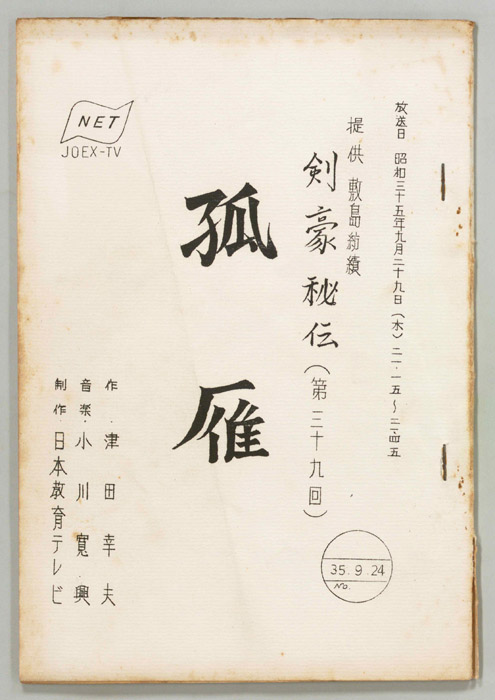 放送日 昭和三十五年九月二十九日(木)二一・一五~二一・四五
提供 敷島紡績
剣豪秘伝(第三十九回)
孤雁
NET
JOEX-TV
作・津田幸夫
音楽・小川寛興
制作・日本教育テレビ
35.9.24
No.